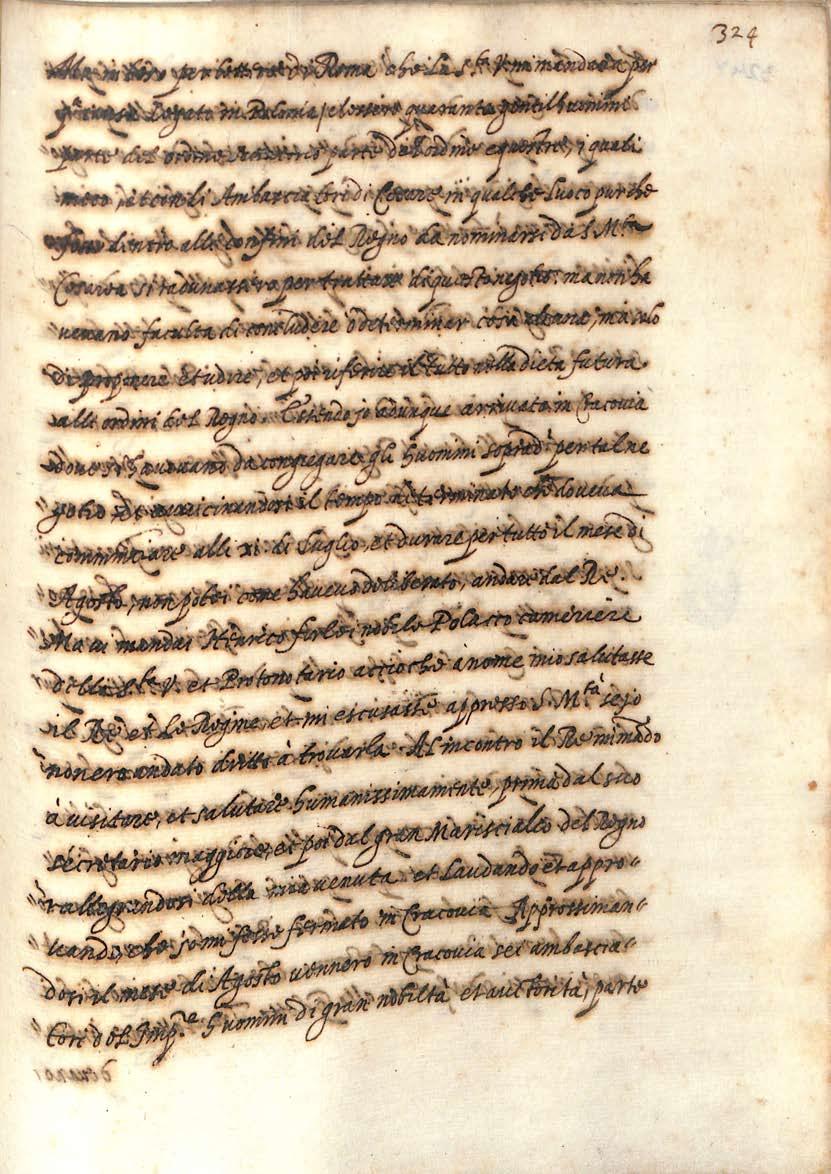 324
per lettere di Roma che la S.tà V. mi mandava per
Legato in Polonia, elessero quaranta gentilhuomini
parte del ordine parte del'ordine equestre, i quali
con li Ambasciatori di Cesare in qualche luoco pur che
dentro alli confini del Regno da nominarsi da S. M.tà
Cesarea si radunassero per trattare di questo negotio: ma non ha
uevano faculta di concludere ò determinar cosa alcuna, ma solo
di proponere et udire, et poi riferire il tutto nella dieta futura
alli ordini del Regno. Essendo jo adunque arrivato in Cracovia
dove si havevano da congregare gli huomini soprad.i per tal ne
gotio et avvicinandosi il tempo determinato che doveva
comminciare alli xi. di Luglio, et durare per tutto il mese di
Agosto, non potei come havevo deliberato, andare dal Re.
Ma vi mandai Henrico nobile Polacco cameriere
della S.tà V. et Protonotario acciochè à nome mio salutasse
il Re et le Regine, et mi escusasse appresso S. M.tà se jo
non ero andato dritto à trovarla. Al incontro il Re mi mãdò
à visitare, et salutare humanissimamente, prima dal suo
secretario maggiore, et poi dal gran Marescialco del Regno
rallegrandosi della mia venuta et laudando et appro-
vando, che jo mi fosse fermato in Cracovia. Approssiman-
dosi il mese di Agosto vennero in Cracovia sei ambascia-
tori del Imp.re huomini di gran nobiltà et auttorità, parte